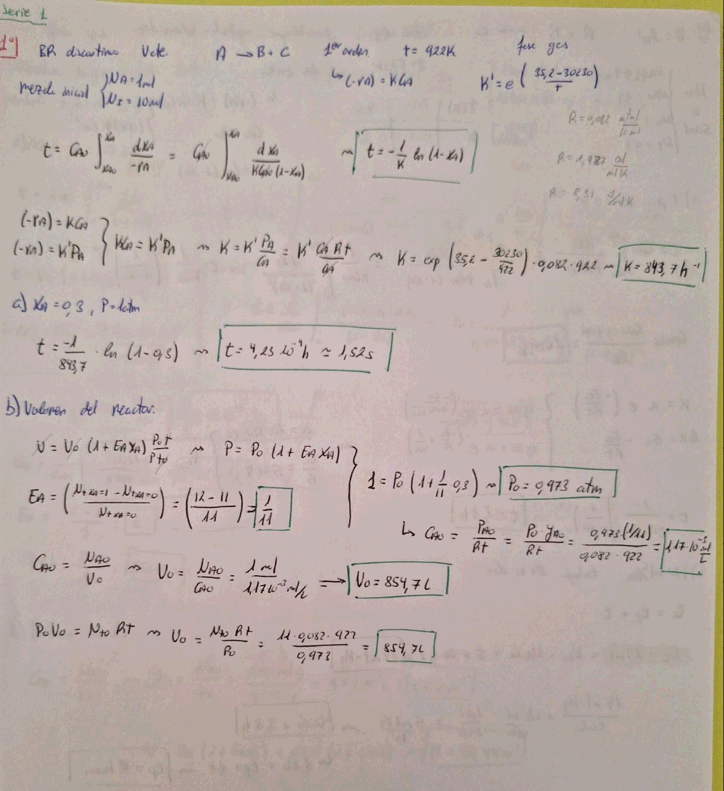 Serie 1
1º) BR discontinuo V cte A → B + C 1er orden t = 922K fase gas
mezcla inicial { NA = 1mol
NI = 10mol
↳ (-rA) = KCA K' = e^( 35,2 - 30230/T )
R = 0,082 atml/molK
R = 1,987 cal/molK
R = 8,31 J/molK
t = CA0 ∫_{XA0}^{XA} dXA/-rA = CA0 ∫_{XA0}^{XA} dXA/KCA0(1-XA) ~ t = -1/K ln (1-XA)
(-rA) = KCA
(-rA) = K'PA } KCA = K'PA ~ K = K' PA/CA = K' CA Rt/CA ~ K = exp (35,2 - 30230/922) · 0,082 · 922 ~ K = 843,7 h⁻¹
a) XA = 0,3, P = 1atm
t = -1/843,7 · ln (1-0,3) ~ t = 4,23 10⁻⁴ h ≃ 1,52s
b) Volumen del reactor:
V = V0 (1 + EA XA) P0 t/P t0 ~ P = P0 (1 + EA XA)
EA = (Nt xA=1 - Nt xA=0 / Nt xA=0) = (12 - 11/11) = 1/11
} 1 = P0 (1 + 1/11 0,3) ~ P0 = 0,973 atm
↳ CA0 = PA0/Rt = P0 · yA0/Rt = 0,973 (1/11)/0,082 · 922 = 1,17·10⁻³ mol/L
CA0 = NA0/V0 ~ V0 = NA0/CA0 = 1 mol/1,17 10⁻³ mol/L ⟶ V0 = 854,7 L
P0 V0 = Nt0 Rt ~ V0 = Nt0 Rt/P0 = 11 · 0,082 · 922/0,973 = 854,7L